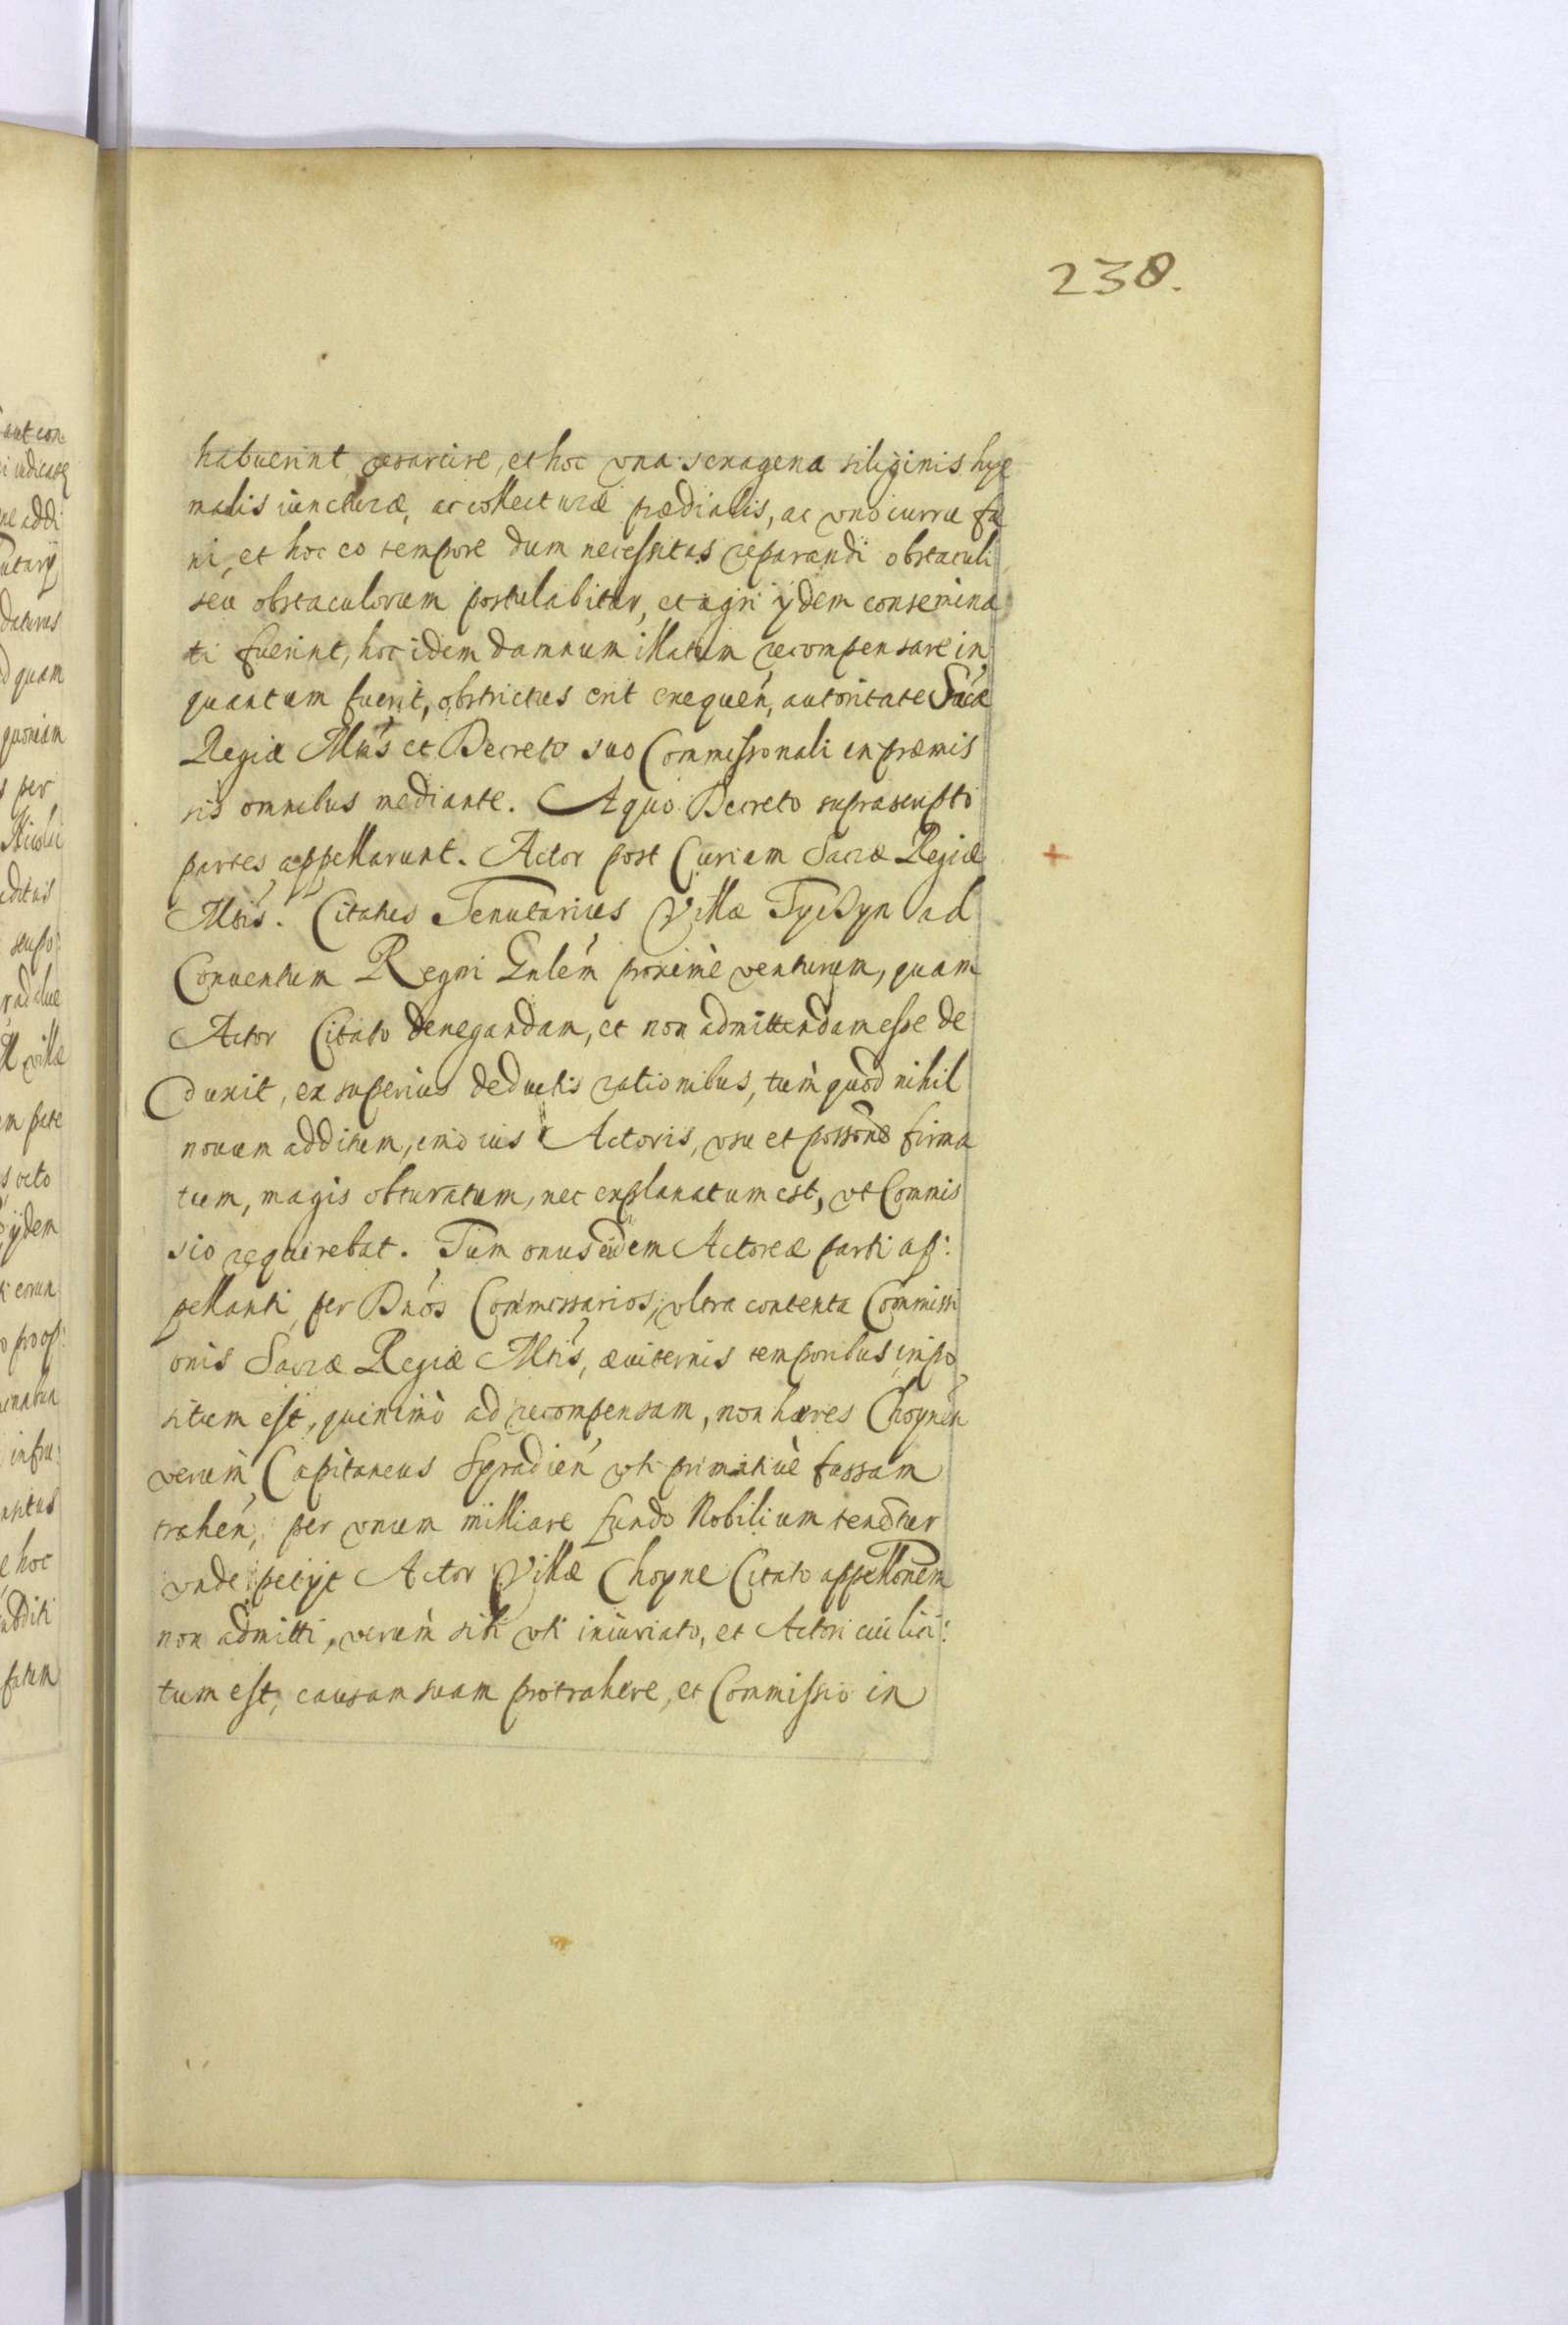 238.
habuerint resarcire, et hoc vna sexagena siliginis hye
malis iuncturæ, ac collecturæ prædialis, ac vno curru fæ
ni, et hoc eo tempore dum necessitas reparandi obstaculi
seu obstaculorum postulabitur, et agri ijdem consemina
ti fuerint, hoc idem damnum illatum recompensare in
quantum fuerit, obstrictus erit exequeń, autoritate Sacræ
Regiæ Mtis et Decreto suo Commissionali in præmis
sis omnibus mediante. A quo Decreto suprascripto
partes appellarunt. Actor post Curiam Sacræ Regiæ
Mtis. Citatus Tenutarius Villæ Tyczyn ad
Conuentum Regni Gnlem proximè venturum, quam
Actor Citato denegandam, et non admittendam esse de
duxit, ex superius deductis rationibus, tum quod nihil
nouum additum, imo ius Actoris, vsu et possone firma
tum, magis obturatum, nec explanatum est, vt Commis
sio requirebat. Tum onus eidem Actoreæ parti ap:
pellanti per Dnos Commissarios, vltra contenta Commissi
onis Sacræ Regiæ Mtis, æuiternis temporibus impo
situm est, quinimò ad recompensam, non hæres Choynen
verum Capitaneus Syradień vti primatiuè fassam
traheń, per vnum milliare fundo Nobilium tenetur
vnde petijt Actor Villæ Choyne Citato appellonem
non admitti, verum sibi vti iniuriato, et Actori cui lici:
tum est, causam suam protrahere, et Commissio in